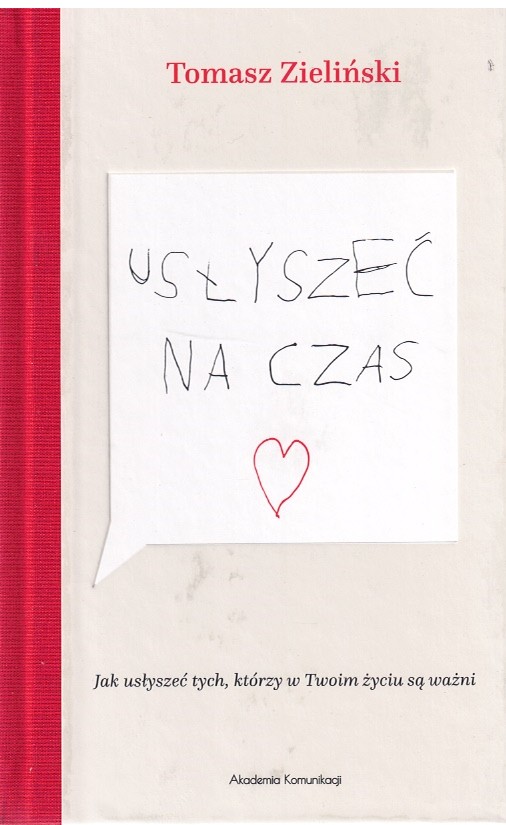 Tomasz Zieliński
USŁYSZEĆ
NA CZAS
Jak usłyszeć tych, którzy w Twoim życiu są ważni
Akademia Komunikacji